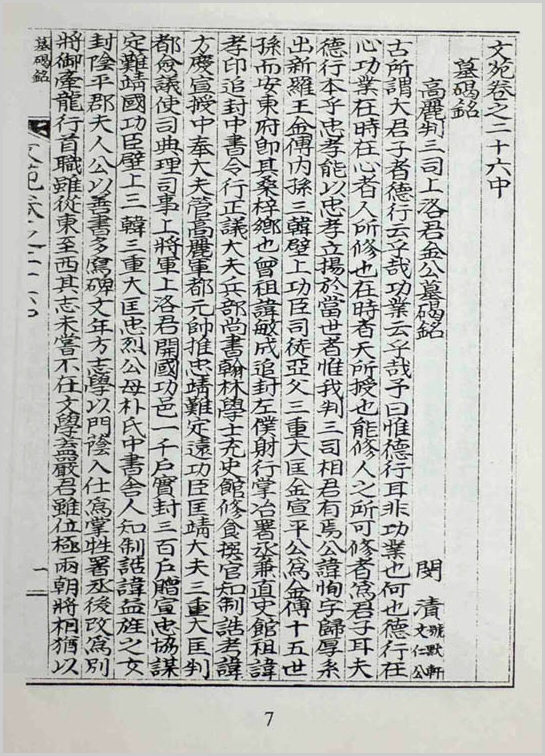 文苑卷之二十六中
墓碣銘
高麗判三司上洛君金公墓碣銘
閔漬號默軒文仁公
古所謂大君子者德行云乎哉功業云乎哉予曰惟德行耳非功業也何也德行在
心功業在時在心者人所修也在時者天所授也能修人之所可修者爲君子耳夫
德行本乎忠孝能以忠孝立揚於當世者惟我判三司相君有焉公諱恂字歸厚系
出新羅王金傅內孫三韓壁上功臣司徒亞父三重大匡金宣平公爲金傅十五世
孫而安東府卽其桑梓鄕也曾祖諱敏成追封左僕射行掌冶署丞兼直史館祖諱
孝印追封中書令行正議大夫兵部尚書翰林學士充史館修食撰官知制誥考諱
方慶宣授中奉大夫管高麗軍都元帥推忠靖難定遠功臣匡靖大夫三重大匡判
都僉議使司典理司事上將軍上洛君開國功邑一千戶實封三百戶贈宣忠協謀
定難靖國功臣壁上三韓三重大匡忠烈公母朴氏中書舍人知制誥諱益旌之女
封陰平郡夫人公以善書多寫碑文年方志學以門蔭入仕爲掌牲署丞後改爲別
將御牽龍行首職雖從東至西其志未嘗不在文學盖嚴君雖位極兩朝將相猶以
墓碣銘
文苑卷之二十六中
一
7